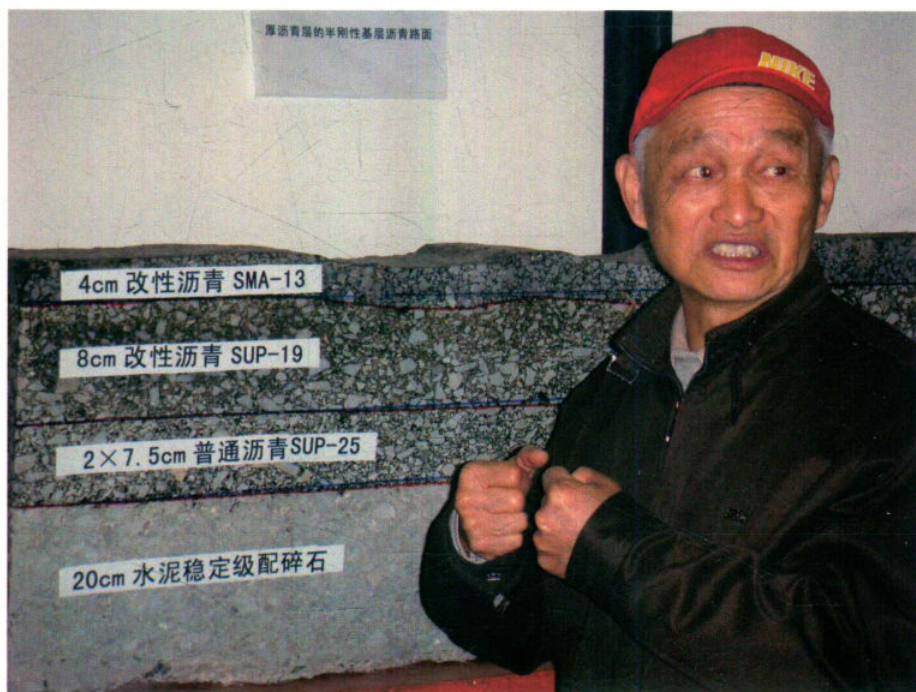 厚沥青层的半刚性基层沥青路面
NIKE
4cm 改性沥青 SMA-13
8cm 改性沥青 SUP-19
2×7.5cm 普通沥青SUP-25
20cm 水泥稳定级配碎石